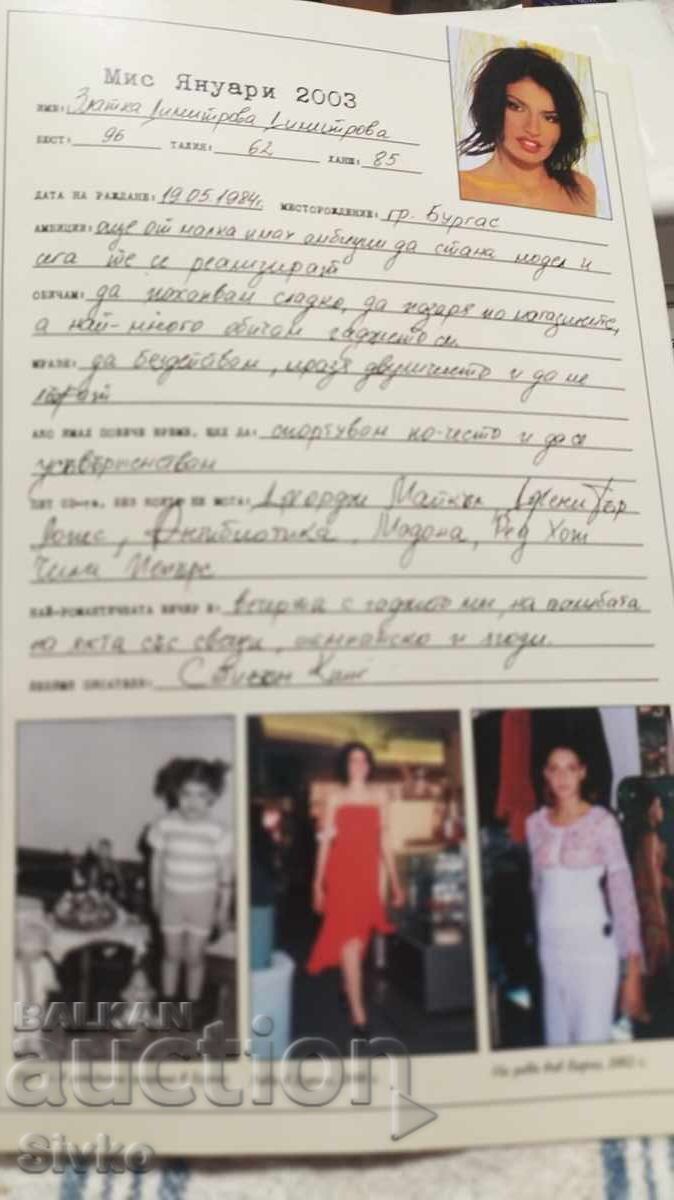 Мис Януари 2003
ИМЕ: Златка Димитрова Димитрова
БЮСТ: 96 ТАЛИЯ: 62 ХАНШ: 85
ДАТА НА РАЖДАНЕ: 19.05.1984г. МЕСТОРОЖДЕНИЕ: гр. Бургас
АМБИЦИИ: още от малка имах амбиции да стана модел и
сега те се реализират
ОБИЧАМ: да похапвам сладко, да пазарувам по магазините,
а най-много обичам гаджето си.
МРАЗЯ: да бездействам, мразя двуличието и да ме
лъжат
АКО ИМАХ ПОВЕЧЕ ВРЕМЕ, БИХ ДА: спортувам по-често и да се
усъвършенствам
ПЕТ CD-та, БЕЗ КОИТО НЕ МОГА: Джордж Майкъл, Дженифър
Лопес, Антибиотика, Мадона, Ред Хот
Чили Пепърс
НАЙ-РОМАНТИЧНАТА ВЕЧЕР Е: вечеря с гаджето ми, на палубата
на яхта със свещи, шампанско и ягоди.
ЛЮБИМИ ПИСАТЕЛИ: Стивън Кинг
2002 г.
BALKAN
auction
Sivko